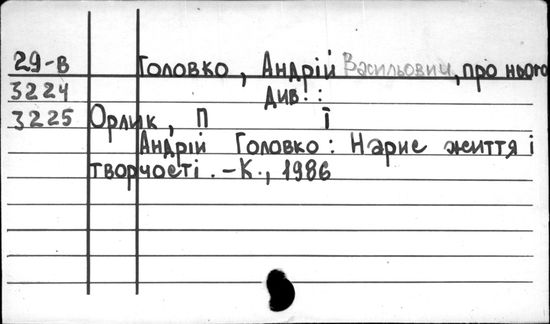 29-в Головко, Андрій Васильович, про нього
3224 див.:
3225 Орлик, П І
Андрій Головко: Нарис життя і
творчості. -К., 1986